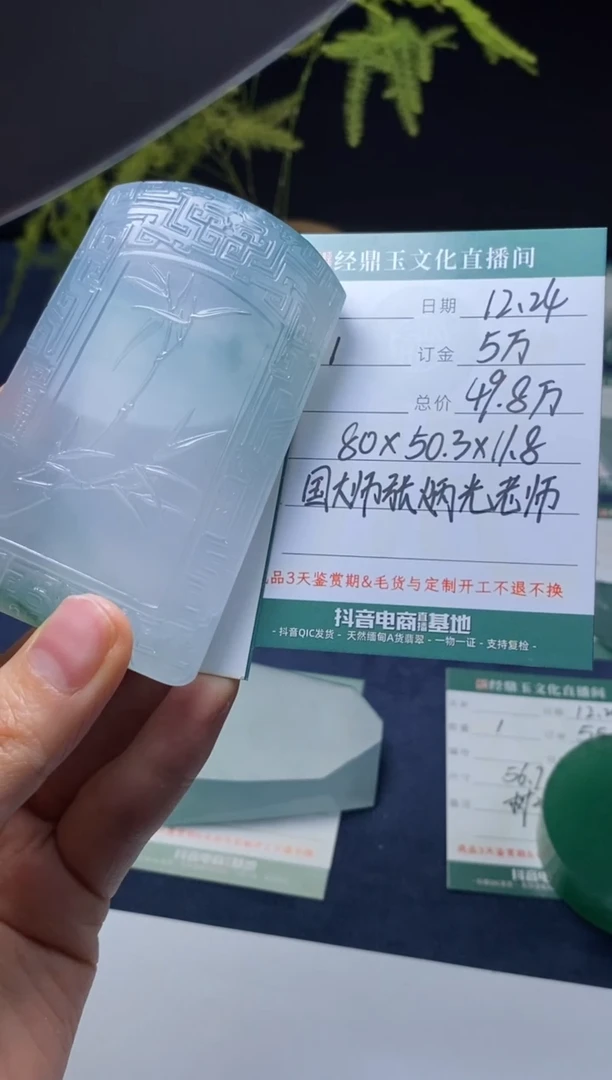 经鼎玉文化直播间
日期 12.24
1 订金 5万
总价 49.8万
80×50.3×11.8
国大师张炳光老师
品3天鉴赏期&毛货与定制开工不退不换
抖音电商直播基地
- 抖音QIC发货 - 天然缅甸A货翡翠 - 一物一证 - 支持复检 -
经鼎玉文化直播间
1